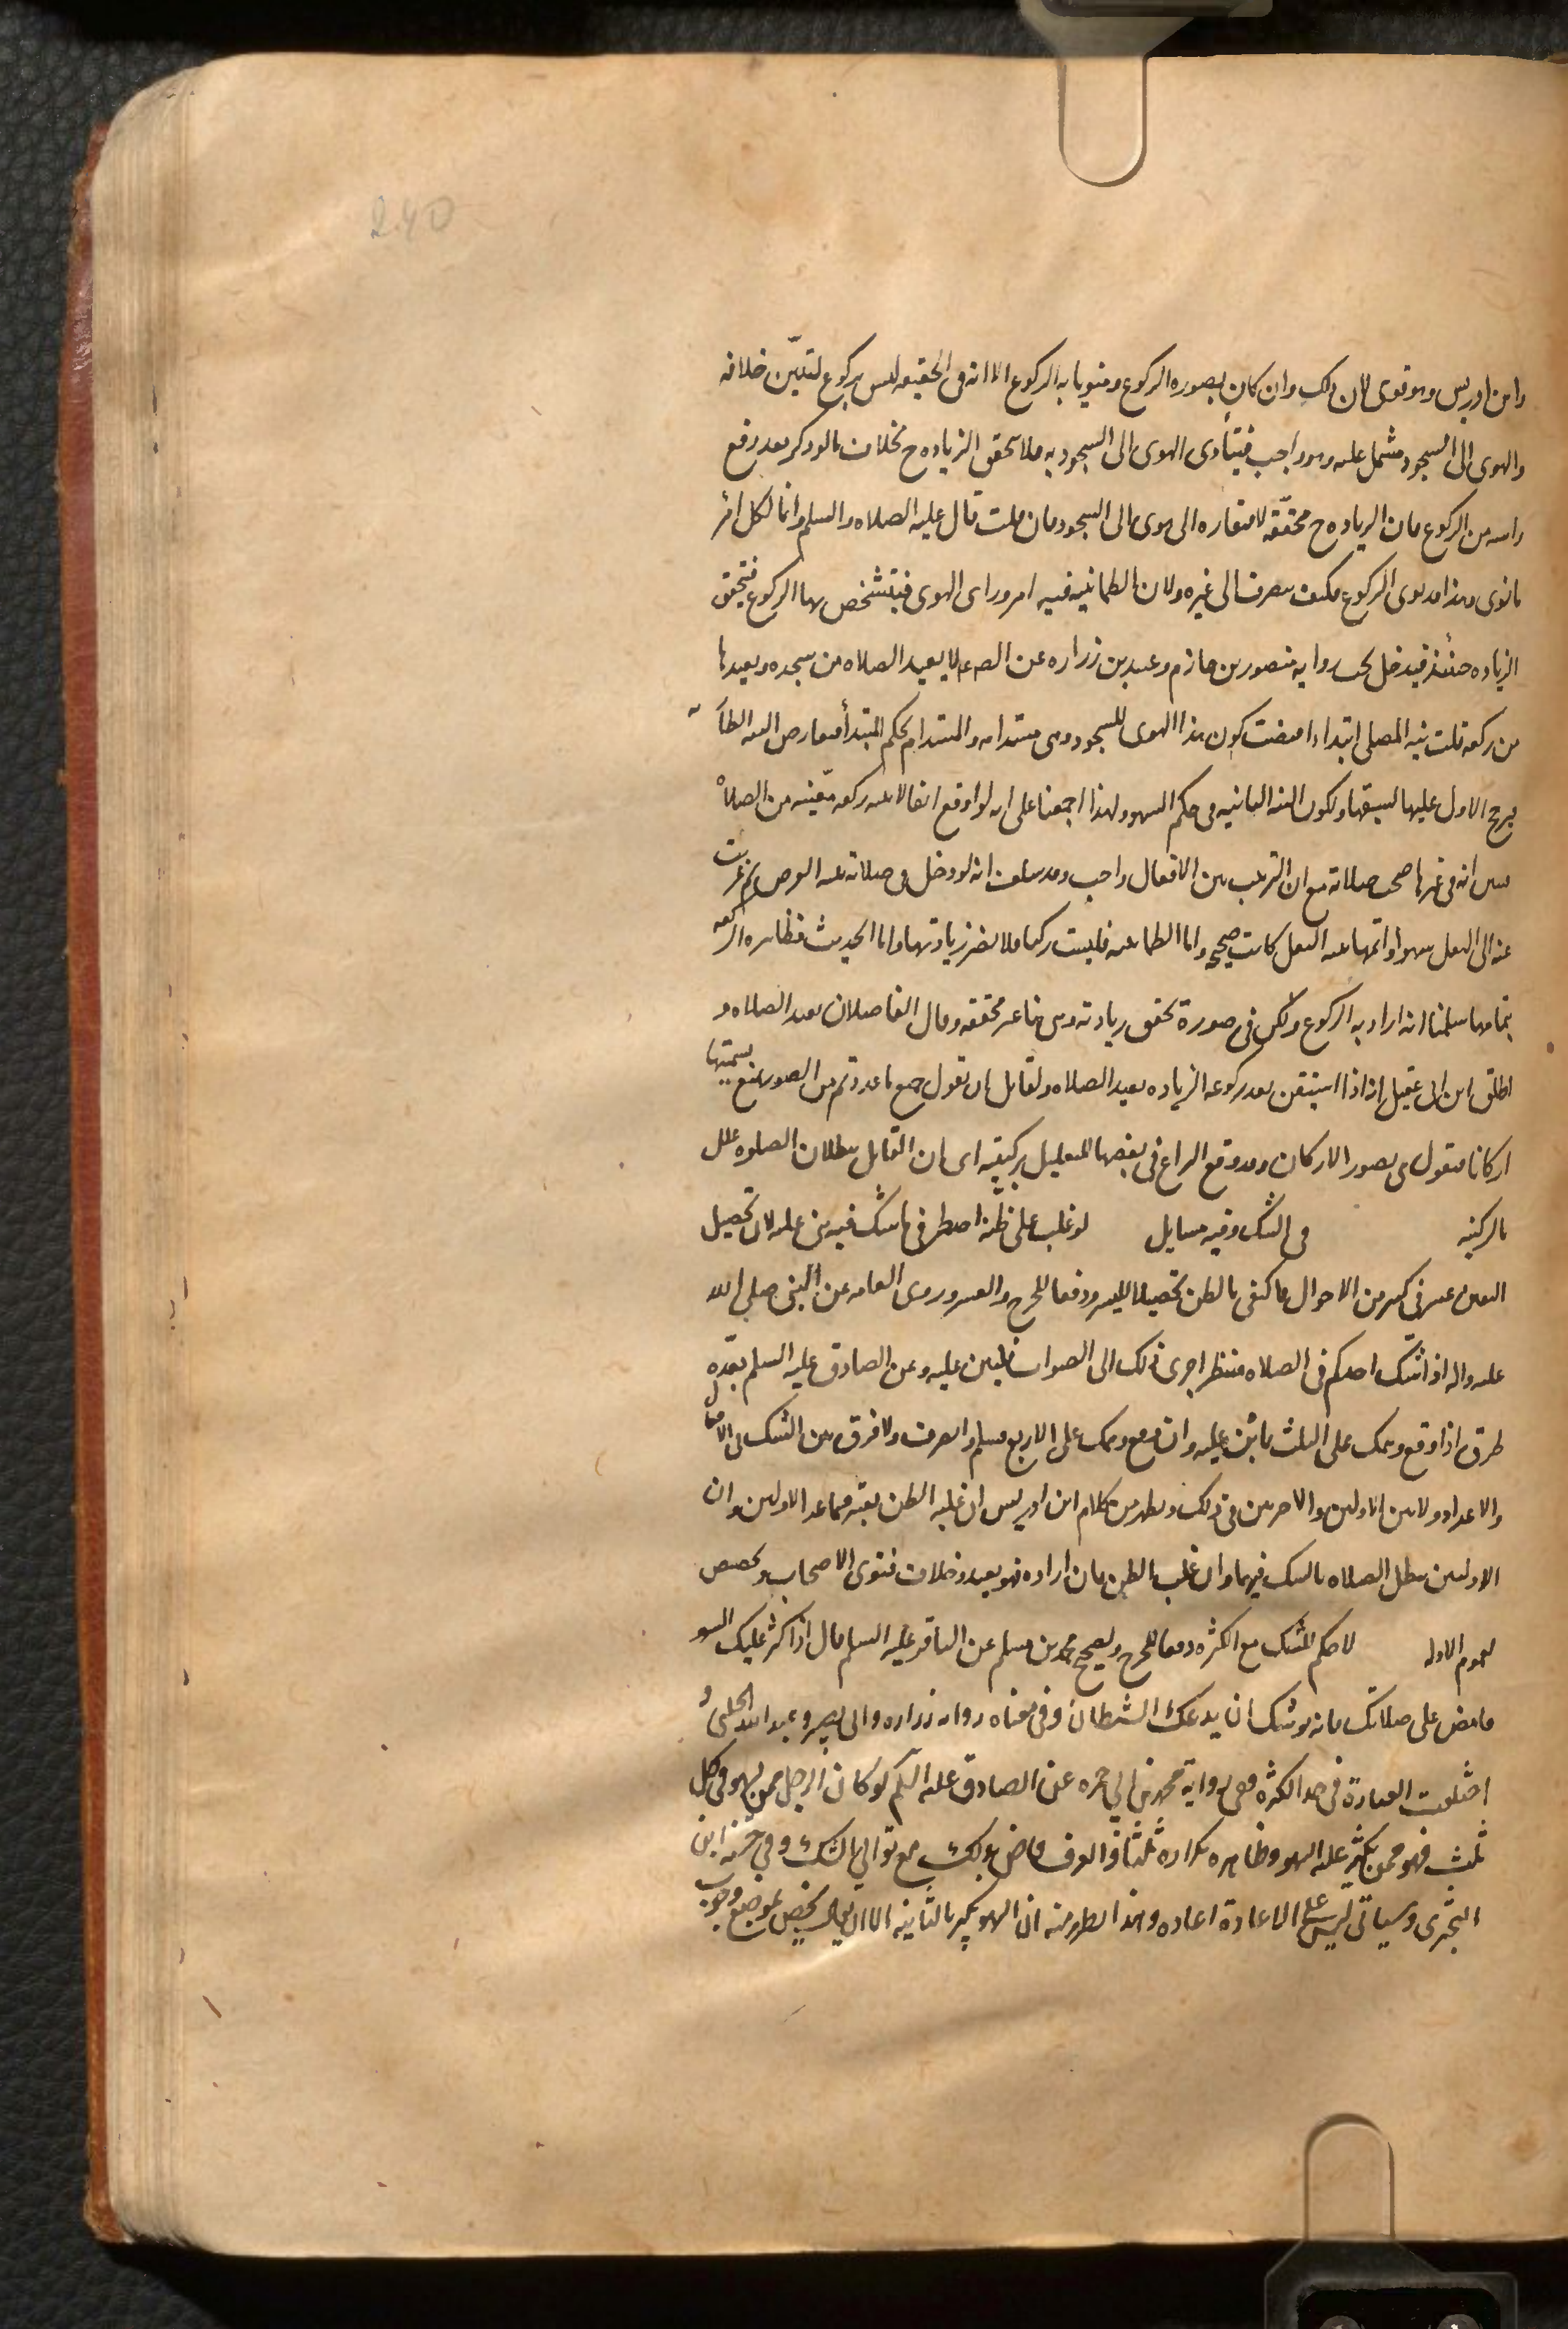 240
وابن ادريس وهو قوى لان ذلك وان كان بصوره الركوع ومنويا به الركوع الا انه فى الحقيقه ليس بركوع لتبيّن خلافه
والهوى الى السجود مشتمل عليه وهو واجب فيتأدى الهوى الى السجود به فلا تتحقق الزياده ح بخلاف ما لو ذكر بعد رفع
راسه من الركوع فان الزياده ح محققه لافتقاره الى هوى الى السجود فان قلت قال عليه الصلاه والسلم وانما لكل امر
ما نوى وهذا قد نوى الركوع فكيف يصرف الى غيره ولان الطمانينه فيه امر وراى الهوى فيتشخص بها الركوع فتحقق
الزياده حينئذ فيدخل تحت روايه منصور بن حازم وعبيد بن زراره عن الص ع لا يعيد الصلاه من سجده ويعيدها
من ركعه قلت نيه المصلى ابتداء اقتضت كون هذا الهوى للسجود وهى مستدامه والمستدام بحكم المبتدأ فتعارض النيه الطا
يرجح الاول عليها لسبقها ولكون النيه الثانيه فى حكم السهو ولهذا اجمعنا على انه لو اوقع افعالا بنيه ركعه معينه من الصلاه
تبين انه فى غيرها صحت صلاته مع ان الترتيب بين الافعال واجب وقد سلف انه لو دخل فى صلاته بنيه الفرض ثم عزبت
عنه الى النفل سهوا واتمها بنيه النفل كانت صحيحه واما الطمانينه فليست ركنا فلا يضر زيادتها واما الحديث فظاهره الركعه
بتمامها سلمنا انه اراد به الركوع ولكن فى صورة تحقق زيادته وهى هنا غير محققه وقال الفاضلان يعيد الصلاه و
اطلق ابن ابى عقيل انه اذا استيقن بعد ركوعه الزياده يعيد الصلاه ولقايل ان يقول جميع ما عددتم من الصور نمنع تسميتها
اركانا فنقول هى بصور الاركان وقد وقع النزاع فى بعضها للتعليل بركنيته اى ان القايل ببطلان الصلوه علل
بالركنيه فى الشك وفيه مسايل لو غلب على ظنه احد طرفى ما شك فيه بنى عليه لان تحصيل
اليقين عسر فى كثير من الاحوال فاكتفى بالظن تحصيلا لليسر ودفعا للحرج والعسر وروى العامه عن النبى صلى الله
عليه واله اذا شك احدكم فى الصلاه فلينظر احرى ذلك الى الصواب فليبن عليه وعن الصادق عليه السلم بعده
طرق اذا وقع وهمك على الثلث فابن عليه وان وقع وهمك على الاربع فسلم وانصرف ولا فرق بين الشك فى الافعال
والاعداد ولا بين الاوليين والاخريين فى ذلك ويظهر من كلام ابن ادريس ان غلبه الظن يعتبر فيما عدا الاوليين وان
الاوليين تبطل الصلاه بالشك فيهما وان غلب الظن فان اراده فهو بعيد وخلاف فتوى الاصحاب وتخصيص
لعموم الادله لا حكم للشك مع الكثره دفعا للحرج ولصحيح محمد بن مسلم عن الباقر عليه السلم قال اذا كثر عليك السهو
فامض على صلاتك فانه يوشك ان يدعك الشيطان وفى معناه روايه زراره وابى بصير وعبد الله الحلبى و
اختلفت العبارة فى حد الكثره ففى رواية محمد بن ابى حمزه عن الصادق عليه السلم لو كان الرجل ممن يسهو فى كل
ثلث فهو ممن يكثر عليه السهو وظاهره تكراره ثلثا والعرف قاض بذلك مع توالى الشك وفى حسنه ابن
البخترى وسياتى ليس على الاعادة اعاده وهذا يظهر منه ان السهو يكثر بالثانيه الا ان يقال يختص بموضع وجوب